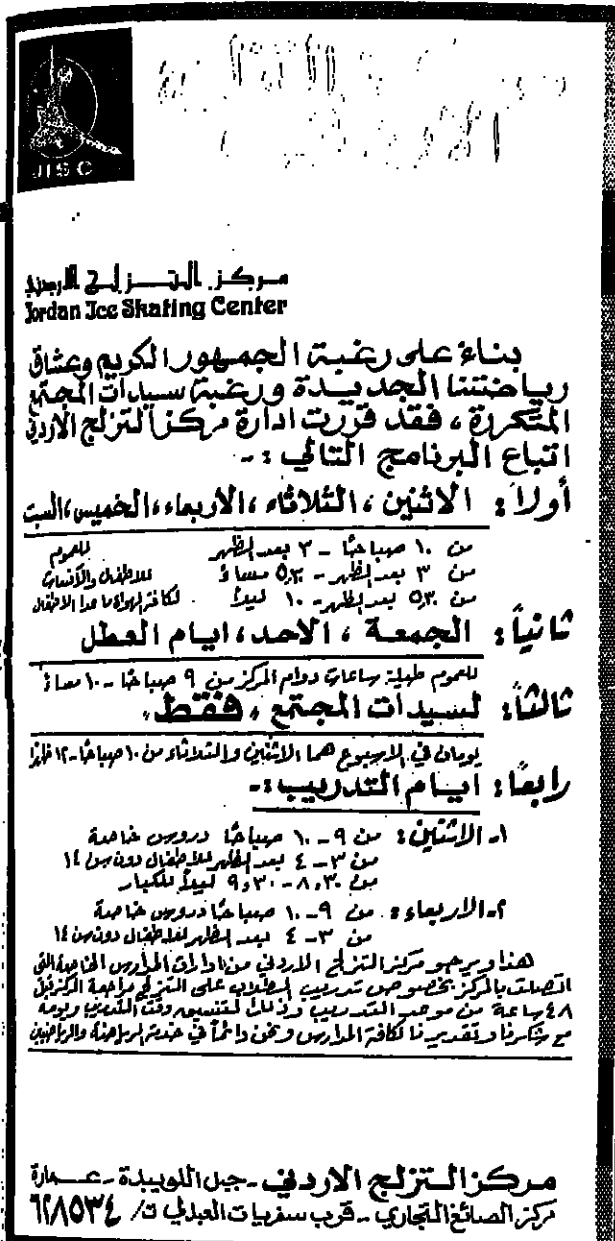 JISC
مركز التزلج الاردني
Jordan Ice Skating Center
بناء على رغبة الجمهور الكريم وعشاق
رياضتنا الجديدة ورغبة سيدات المجتمع
المتكررة، فقد قررت ادارة مركز التزلج الاردني
اتباع البرنامج التالي :-
أولاً: الاثنين، الثلاثاء، الاربعاء، الخميس، السبت
من ١٠ صباحًا - ٣ بعد الظهر للعموم
من ٣ بعد الظهر - ٥,٣٠ مساءً للاطفال والآنسات
من ٥,٣٠ بعد الظهر - ١٠ ليلاً لكافة الهواة ما عدا الاطفال
ثانياً: الجمعة، الاحد، ايام العطل
للعموم طيلة ساعات دوام المركز من ٩ صباحًا - ١٠ مساءً
ثالثاً: لسيدات المجتمع، فقط،
يومان في الاسبوع هما الاثنين والثلاثاء من ١٠ صباحًا - ١٢ ظهرًا
رابعًا: ايام التدريب :-
١- الاثنين: من ٩ - ١٠ صباحًا دروس خاصة
من ٣ - ٤ بعد الظهر للاطفال دون سن ١٤
من ٨,٣٠ - ٩,٣٠ ليلاً للكبار
٢- الاربعاء: من ٩ - ١٠ صباحًا دروس خاصة
من ٣ - ٤ بعد الظهر للاطفال دون سن ١٤
هذا ويرجو مركز التزلج الاردني من ادارات المدارس الخاصة التي
اتصلت بالمركز بخصوص تدريب الطلاب على التزلج مراجعة المركز قبل
٤٨ ساعة من موعد التدريب وذلك لتنسيق وقت التدريب ويومه
مع شكرنا وتقديرنا لكافة المدارس ونحن دائماً في خدمة الرياضة والرياضيين
مركز التزلج الاردني - جبل اللويبدة - عمارة
مركز الصائغ التجاري - قرب سفريات العبدلي ت/ ٦٢٨٥٣٤